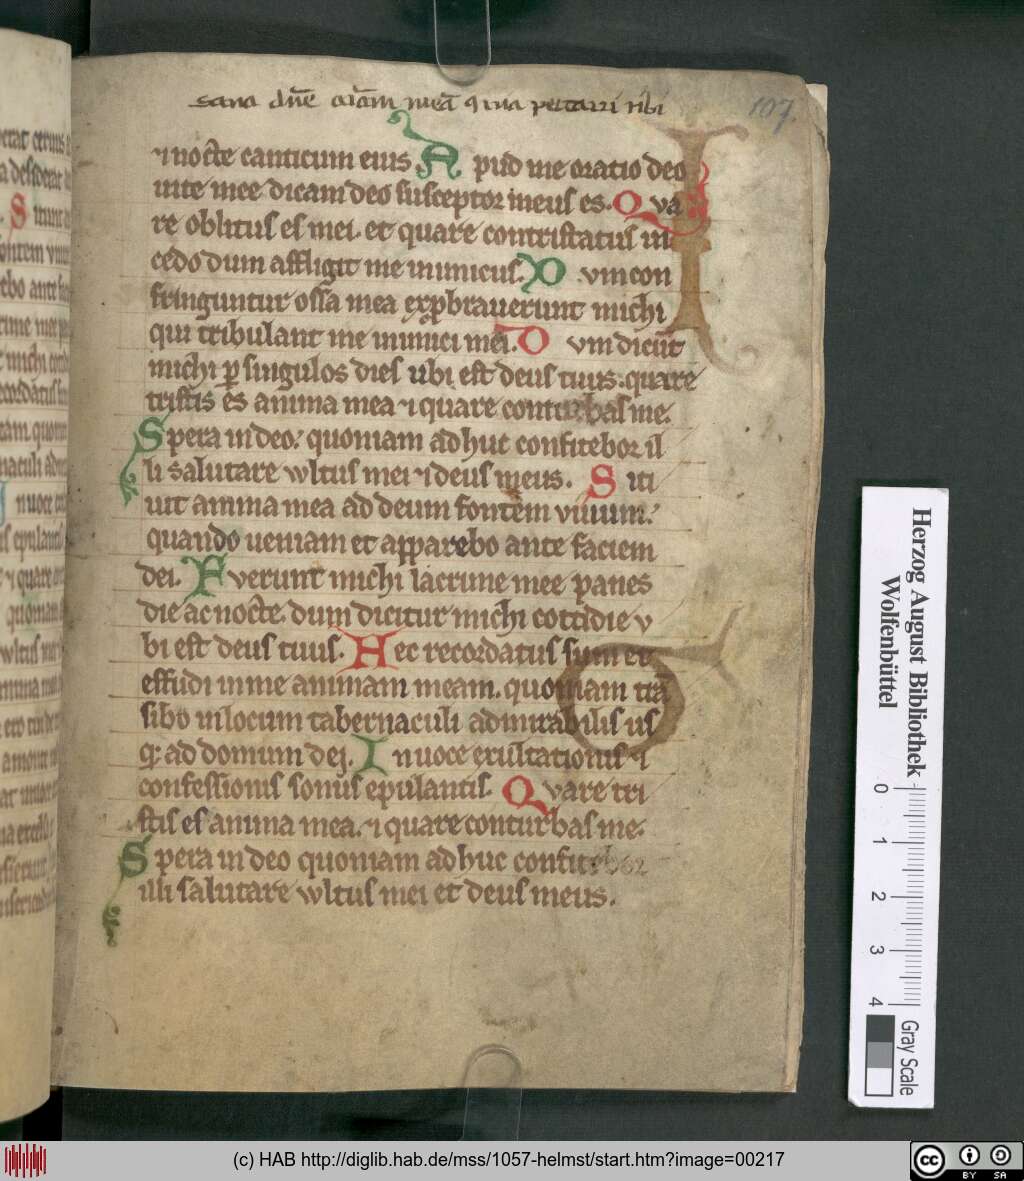 sana dn̄e aīam meā q̄ia peccaui tibi
107.
⁊ nocte canticum eius. Apud me oratio deo
uite mee dicam deo susceptor meus es. Qva
re oblitus es mei. et quare contristatus in
cedo dum affligit me inimicus. D vm con
fringuntur ossa mea exꝓbrauerunt michi
qui tribulant me inimici mei. D vm dicūt
michi ꝑ singulos dies ubi est deus tuus. quare
tristis es anima mea ⁊ quare conturbas me.
Spera in deo. quoniam adhuc confitebor il
li salutare wltus mei ⁊ deus meus. Siti
uit anima mea ad deum fontem viuum.
quando ueniam et apparebo ante faciem
dei. Fverunt michi lacrime mee panes
die ac nocte. dum dicitur michi cottidie v
bi est deus tuus. Hec recordatus sum et
effudi in me animam meam. quoniam trā
sibo in locum tabernaculi admirabilis us
qꝫ ad domum dei. In uoce exultationis ⁊
confessionis sonus epulantis. Qvare tri
stis es anima mea. ⁊ quare conturbas me.
Spera in deo quoniam adhuc confitebor
illi salutare wltus mei et deus meus.
Herzog August Bibliothek
Wolfenbüttel
0 1 2 3 4
Gray Scale
(c) HAB http://diglib.hab.de/mss/1057-helmst/start.htm?image=00217
cc BY SA